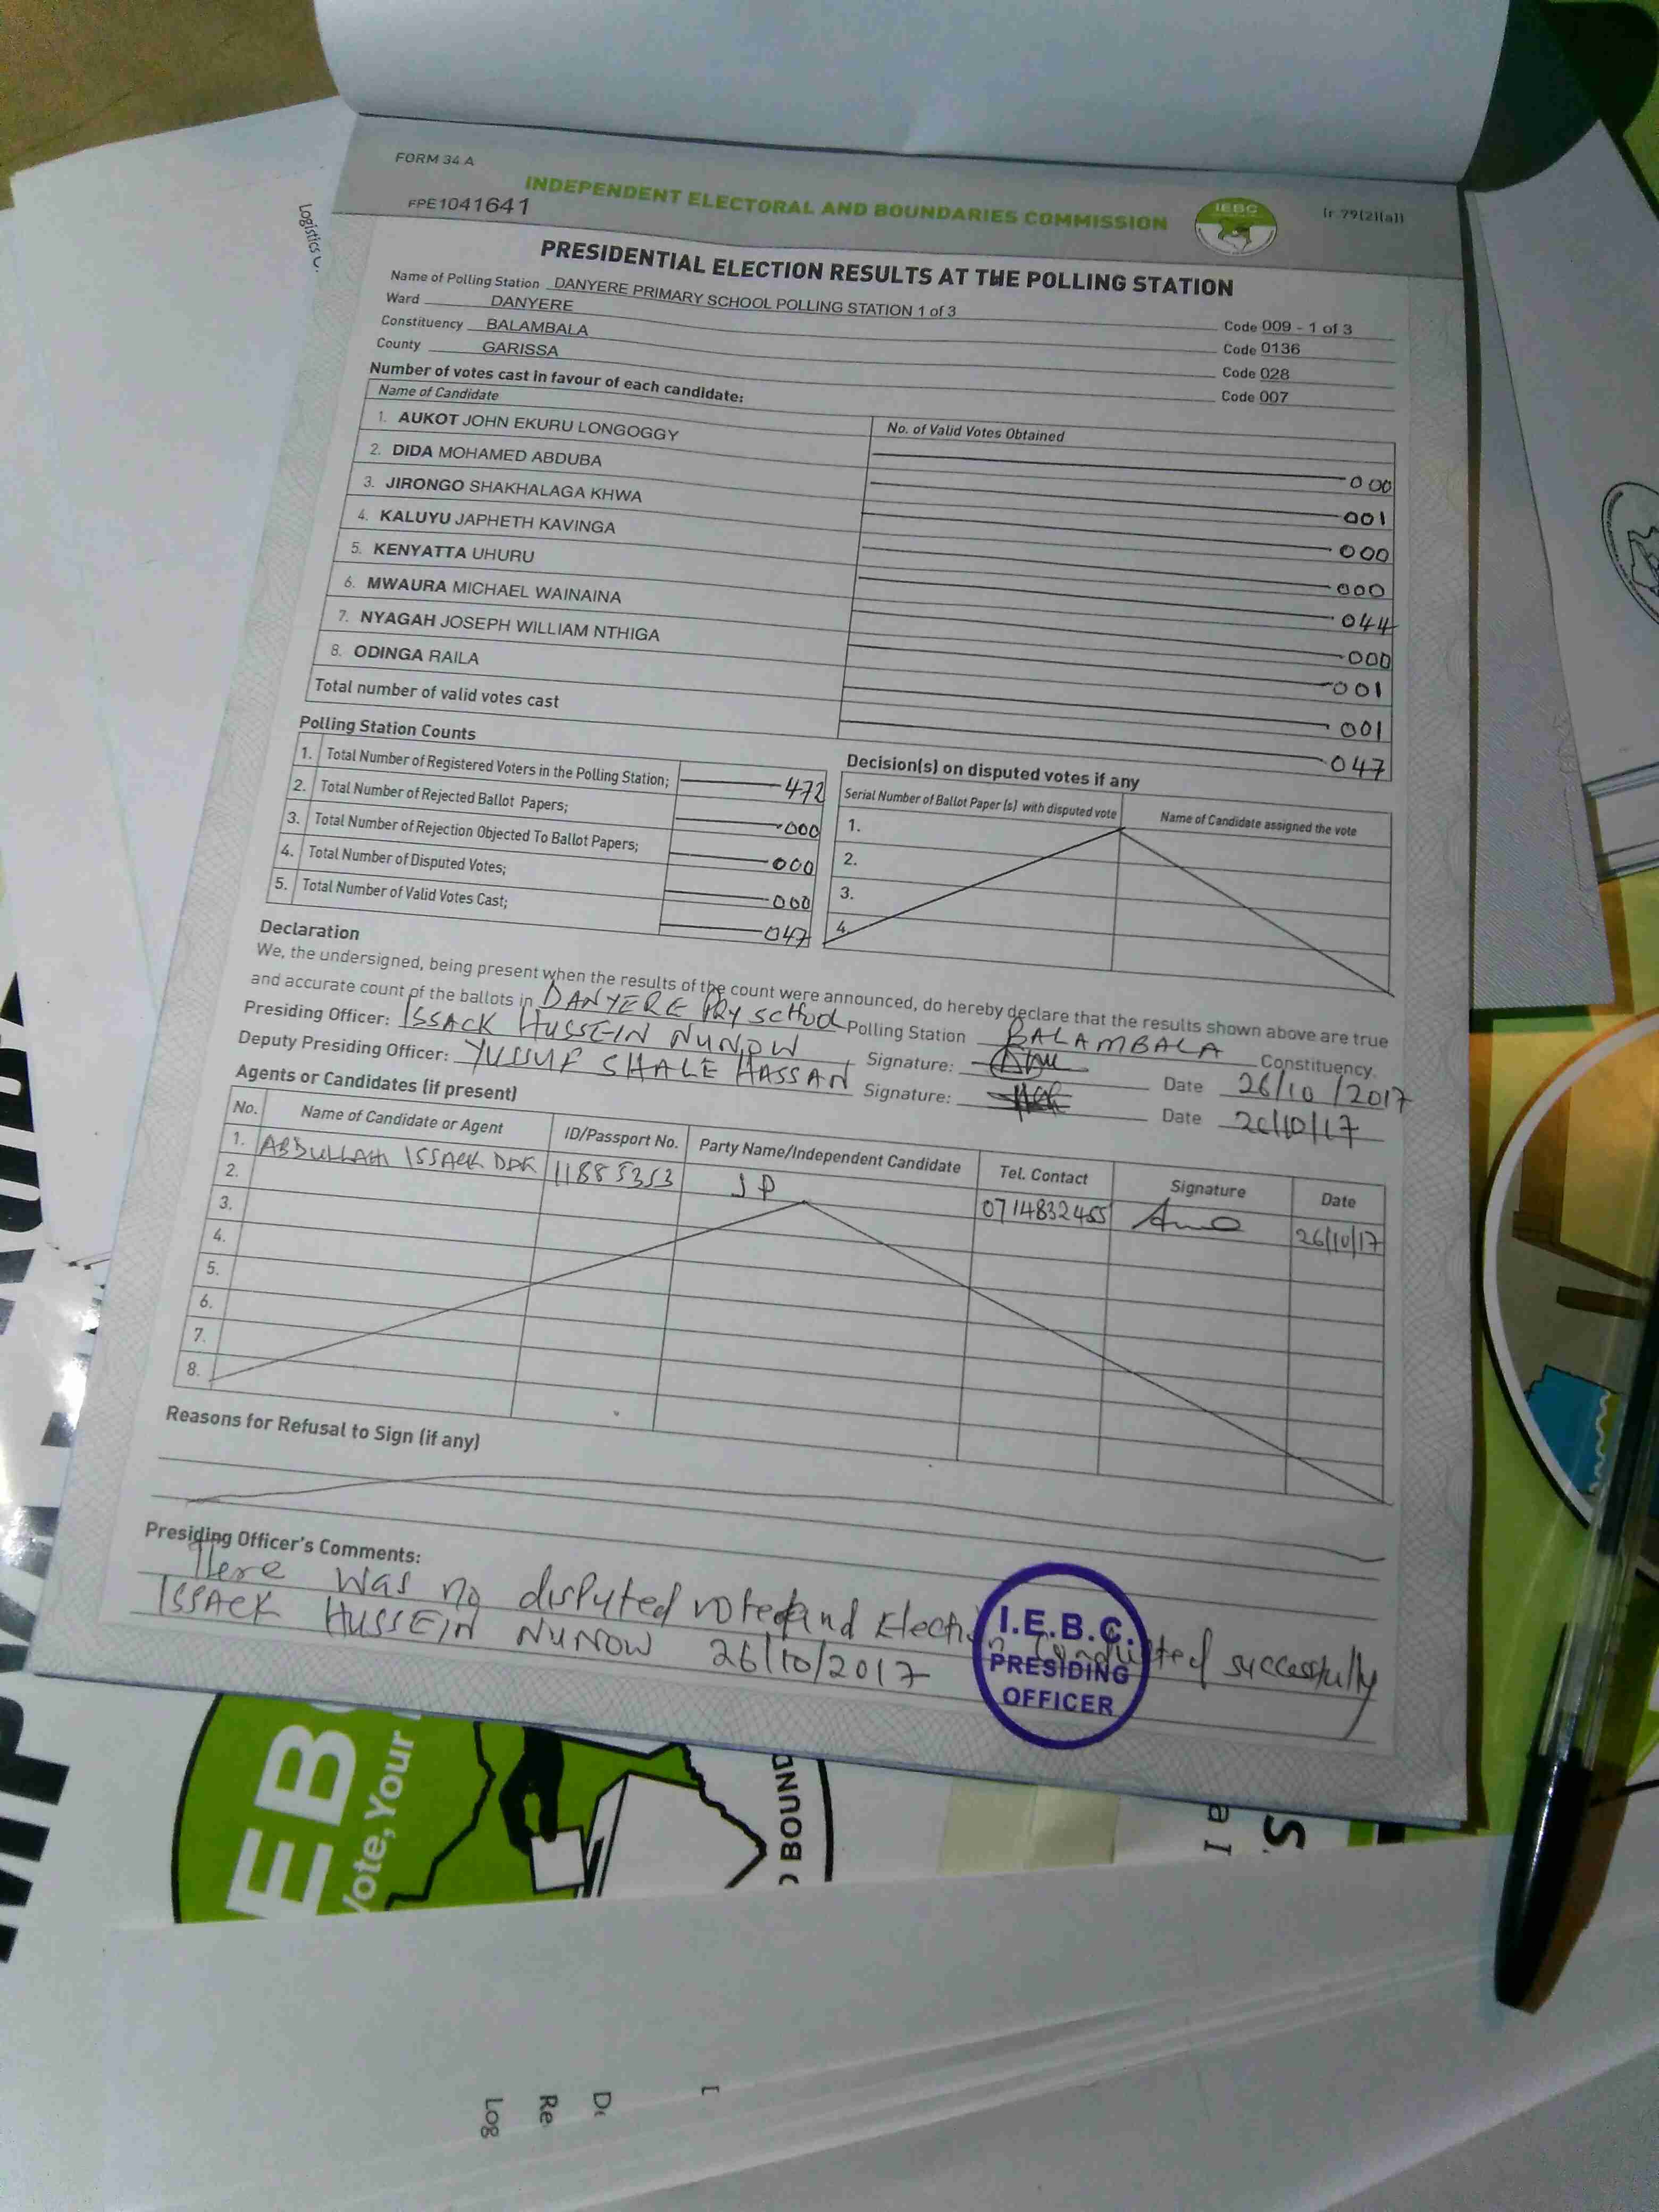 FORM 34 A
INDEPENDENT ELECTORAL AND BOUNDARIES COMMISSION
IEBC
(r.79(2)(a))
FPE1041641
PRESIDENTIAL ELECTION RESULTS AT THE POLLING STATION
Name of Polling Station DANYERE PRIMARY SCHOOL POLLING STATION 1 of 3 Code 009 - 1 of 3
Ward DANYERE Code 0136
Constituency BALAMBALA Code 028
County GARISSA Code 007
Number of votes cast in favour of each candidate:
Name of Candidate No. of Valid Votes Obtained
1. AUKOT JOHN EKURU LONGOGGY 000
2. DIDA MOHAMED ABDUBA 001
3. JIRONGO SHAKHALAGA KHWA 000
4. KALUYU JAPHETH KAVINGA 000
5. KENYATTA UHURU 044
6. MWAURA MICHAEL WAINAINA 000
7. NYAGAH JOSEPH WILLIAM NTHIGA 001
8. ODINGA RAILA 001
Total number of valid votes cast 047
Polling Station Counts
1. Total Number of Registered Voters in the Polling Station; 472
2. Total Number of Rejected Ballot Papers; 000
3. Total Number of Rejection Objected To Ballot Papers; 000
4. Total Number of Disputed Votes; 000
5. Total Number of Valid Votes Cast; 047
Decision(s) on disputed votes if any
Serial Number of Ballot Paper (s) with disputed vote Name of Candidate assigned the vote
1.
2.
3.
4.
Declaration
We, the undersigned, being present when the results of the count were announced, do hereby declare that the results shown above are true
and accurate count of the ballots in DANYERE PRY SCHOOL Polling Station BALAMBALA Constituency.
Presiding Officer: ISSACK HUSSEIN NUNOW Signature: Date 26/10/2017
Deputy Presiding Officer: YUSSUF SHALE HASSAN Signature: Date 26/10/17
Agents or Candidates (if present)
No. Name of Candidate or Agent ID/Passport No. Party Name/Independent Candidate Tel. Contact Signature Date
1. ABDULLAHI ISSACK 11885353 JP 0714832455 26/10/17
2.
3.
4.
5.
6.
7.
8.
Reasons for Refusal to Sign (if any)
Presiding Officer's Comments:
There was no disputed voted and Election Conducted successfully
ISSACK HUSSEIN NUNOW 26/10/2017
I.E.B.C.
PRESIDING
OFFICER
Logistics
Vote, Your
BOUND
Log
Re